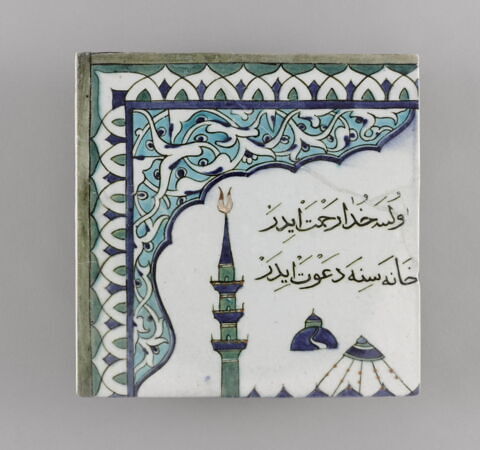 اولسه خدا رحمت ایدر
خانه سنه دعوت ایدر